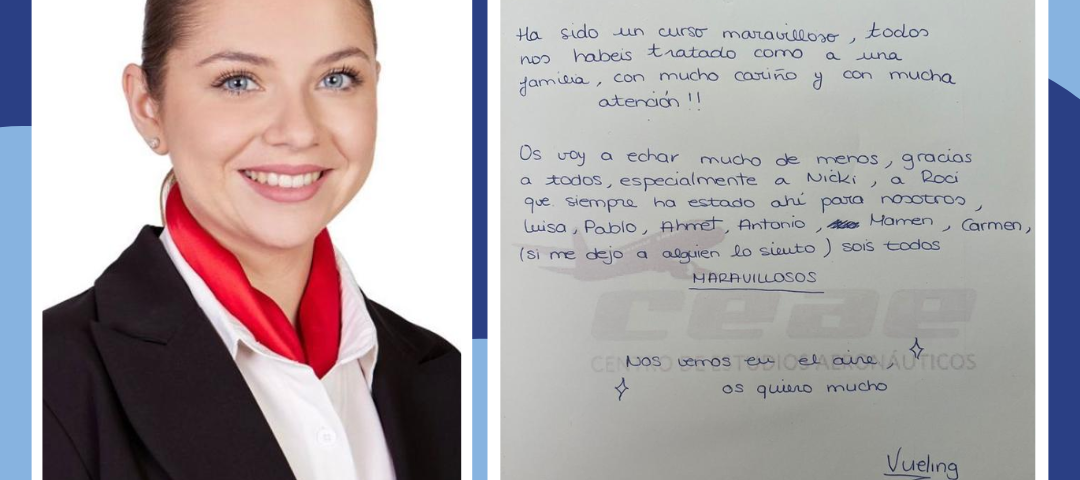 Ha sido un curso maravilloso, todos
nos habeis tratado como a una
familia, con mucho cariño y con mucha
atención!!
Os voy a echar mucho de menos, gracias
a todos, especialmente a Nicki, a Roci
que siempre ha estado ahí para nosotros,
Luisa, Pablo, Ahmet, Antonio, Mamen, Carmen,
(si me dejo a alguien lo siento) sois todos
MARAVILLOSOS
ceae
CENTRO DE ESTUDIOS AERONÁUTICOS
Nos vemos en el aire,
os quiero mucho
Vueling